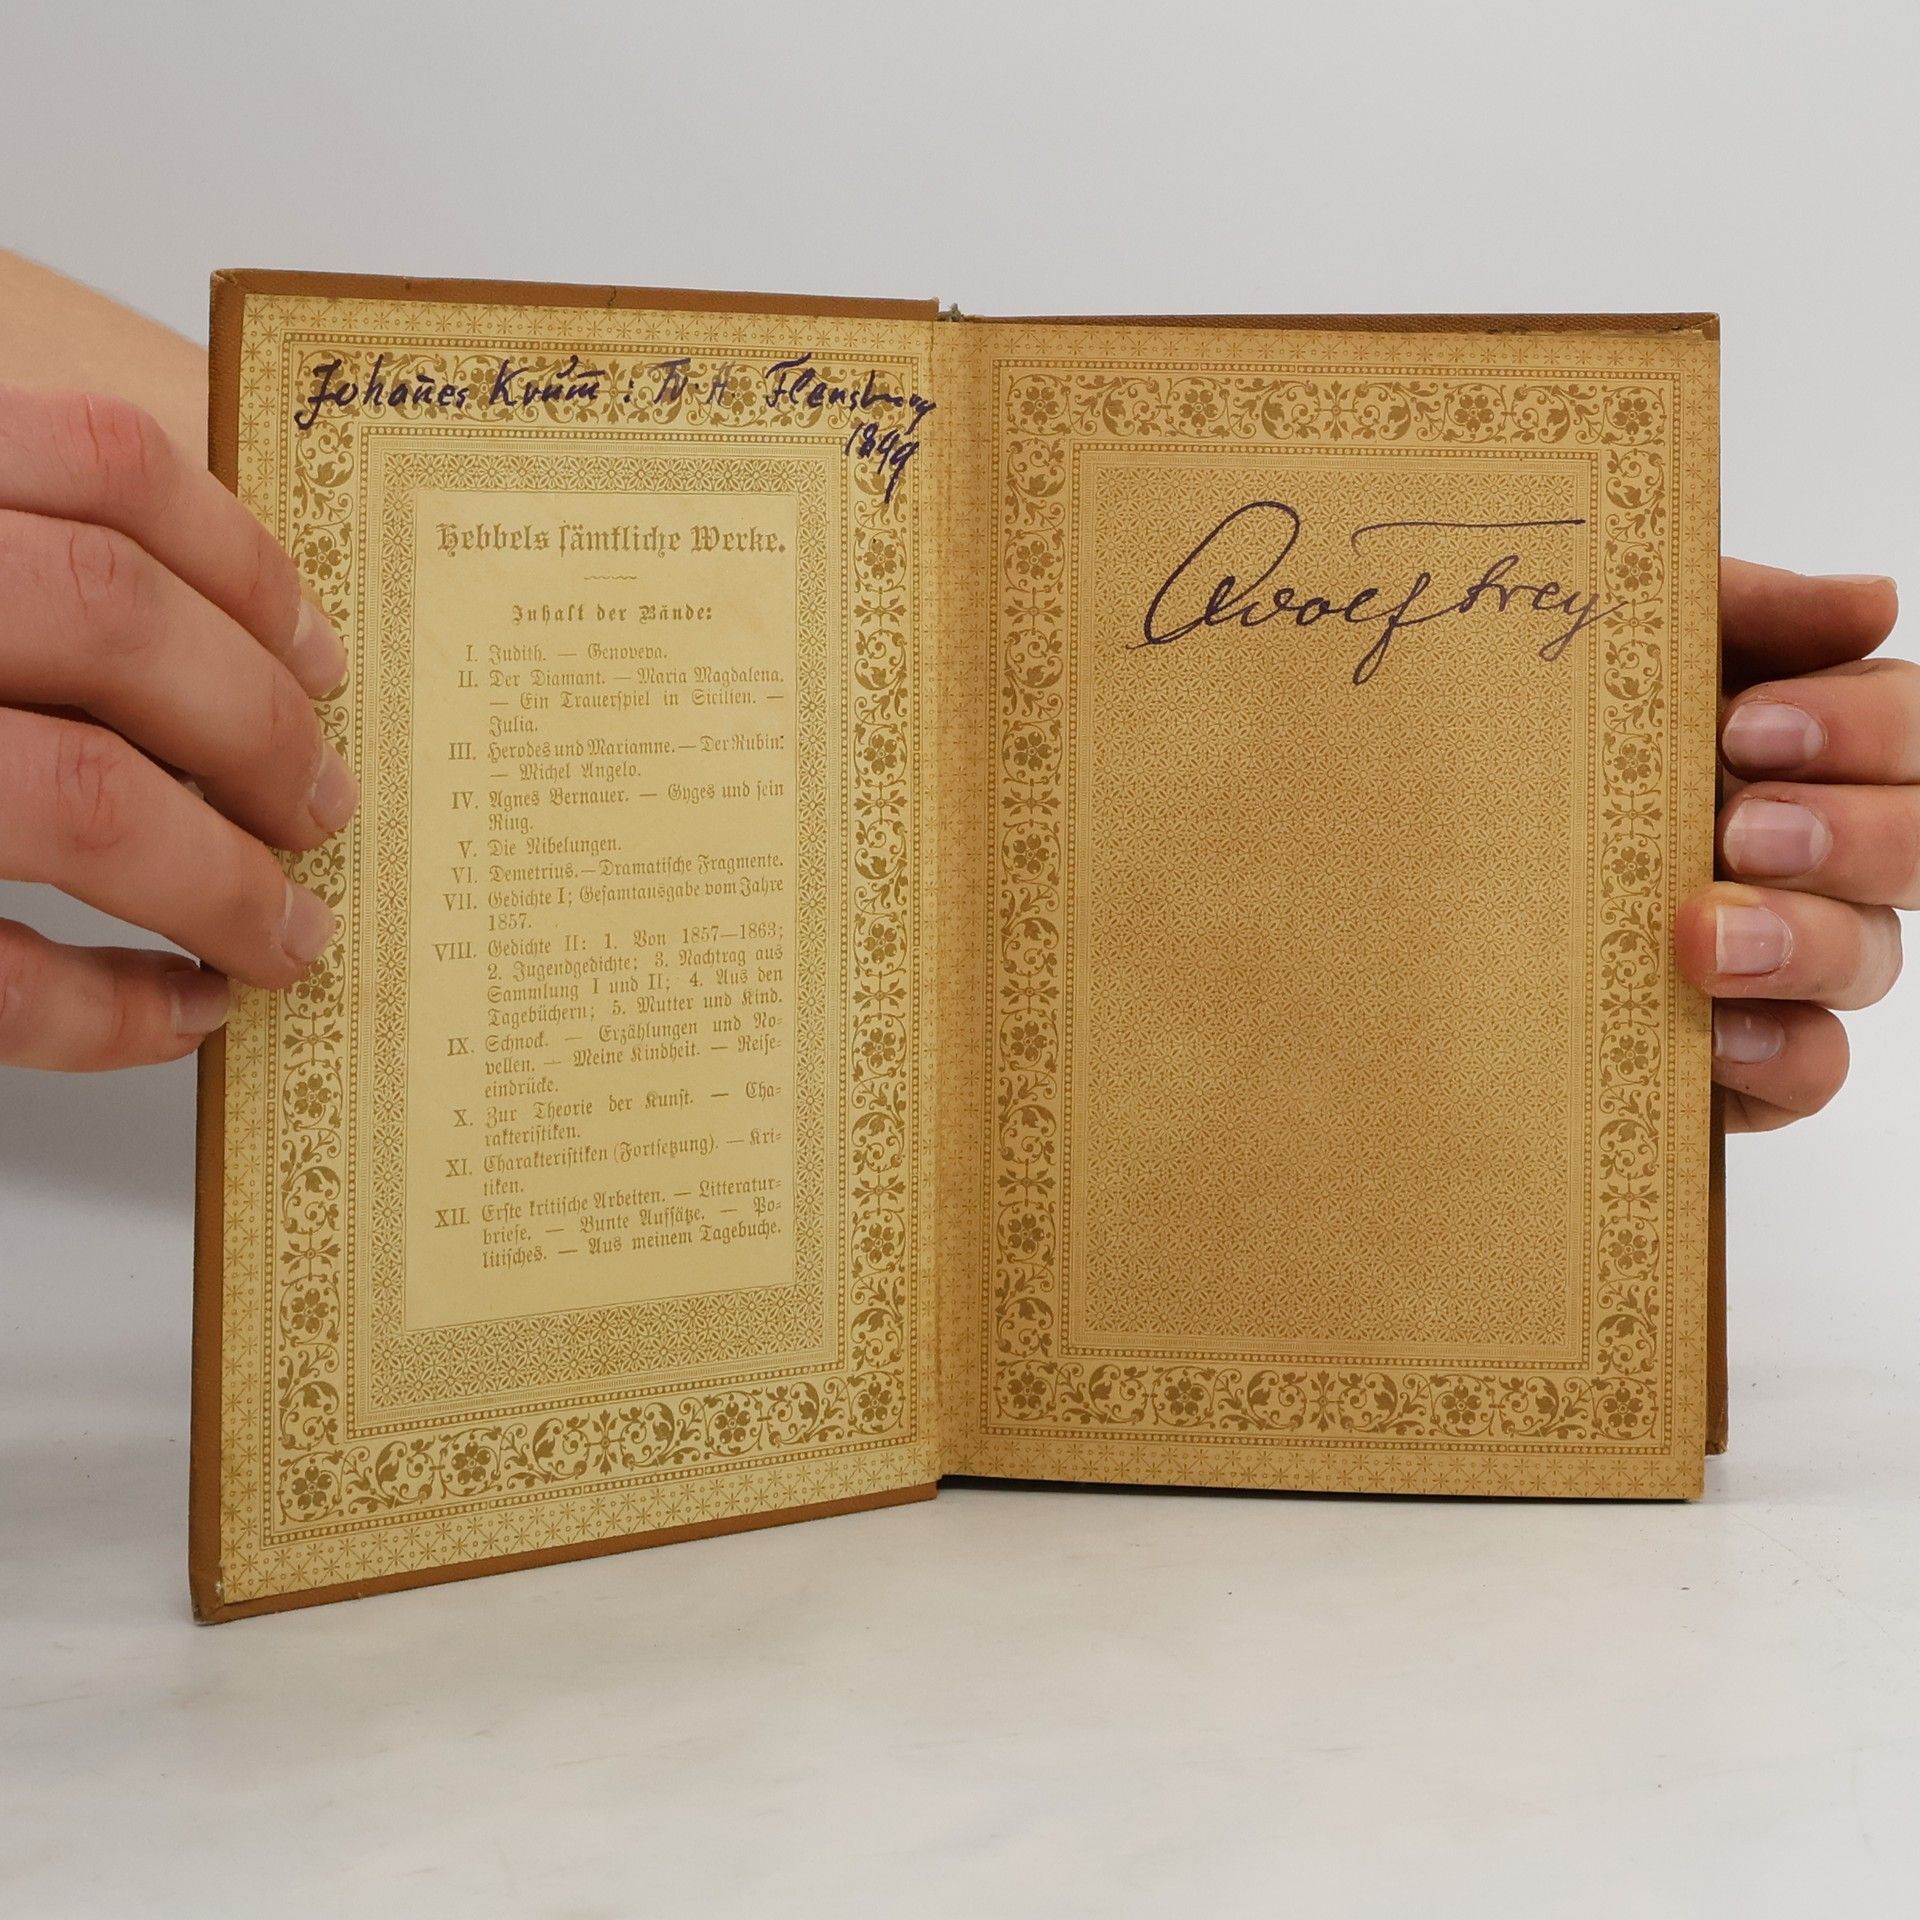 Johañes Krum̄: Flensburg
1899
Hebbels ſämtliche Werke.
Inhalt der Bände:
I. Judith. — Genoveva.
II. Der Diamant. — Maria Magdalena.
— Ein Trauerſpiel in Sicilien. —
Julia.
III. Herodes und Mariamne. — Der Rubin.
— Michel Angelo.
IV. Agnes Bernauer. — Gyges und ſein
Ring.
V. Die Nibelungen.
VI. Demetrius. — Dramatiſche Fragmente.
VII. Gedichte I; Geſamtausgabe vom Jahre
1857.
VIII. Gedichte II: 1. Von 1857—1863;
2. Jugendgedichte; 3. Nachtrag aus
Sammlung I und II; 4. Aus den
Tagebüchern; 5. Mutter und Kind.
IX. Schnock. — Erzählungen und No-
vellen. — Meine Kindheit. — Reiſe-
eindrücke.
X. Zur Theorie der Kunſt. — Cha-
rakteriſtiken.
XI. Charakteriſtiken (Fortſetzung). — Kri-
tiken.
XII. Erſte kritiſche Arbeiten. — Litteratur-
briefe. — Bunte Aufſätze. — Po-
litiſches. — Aus meinem Tagebuche.
Adolf Frey